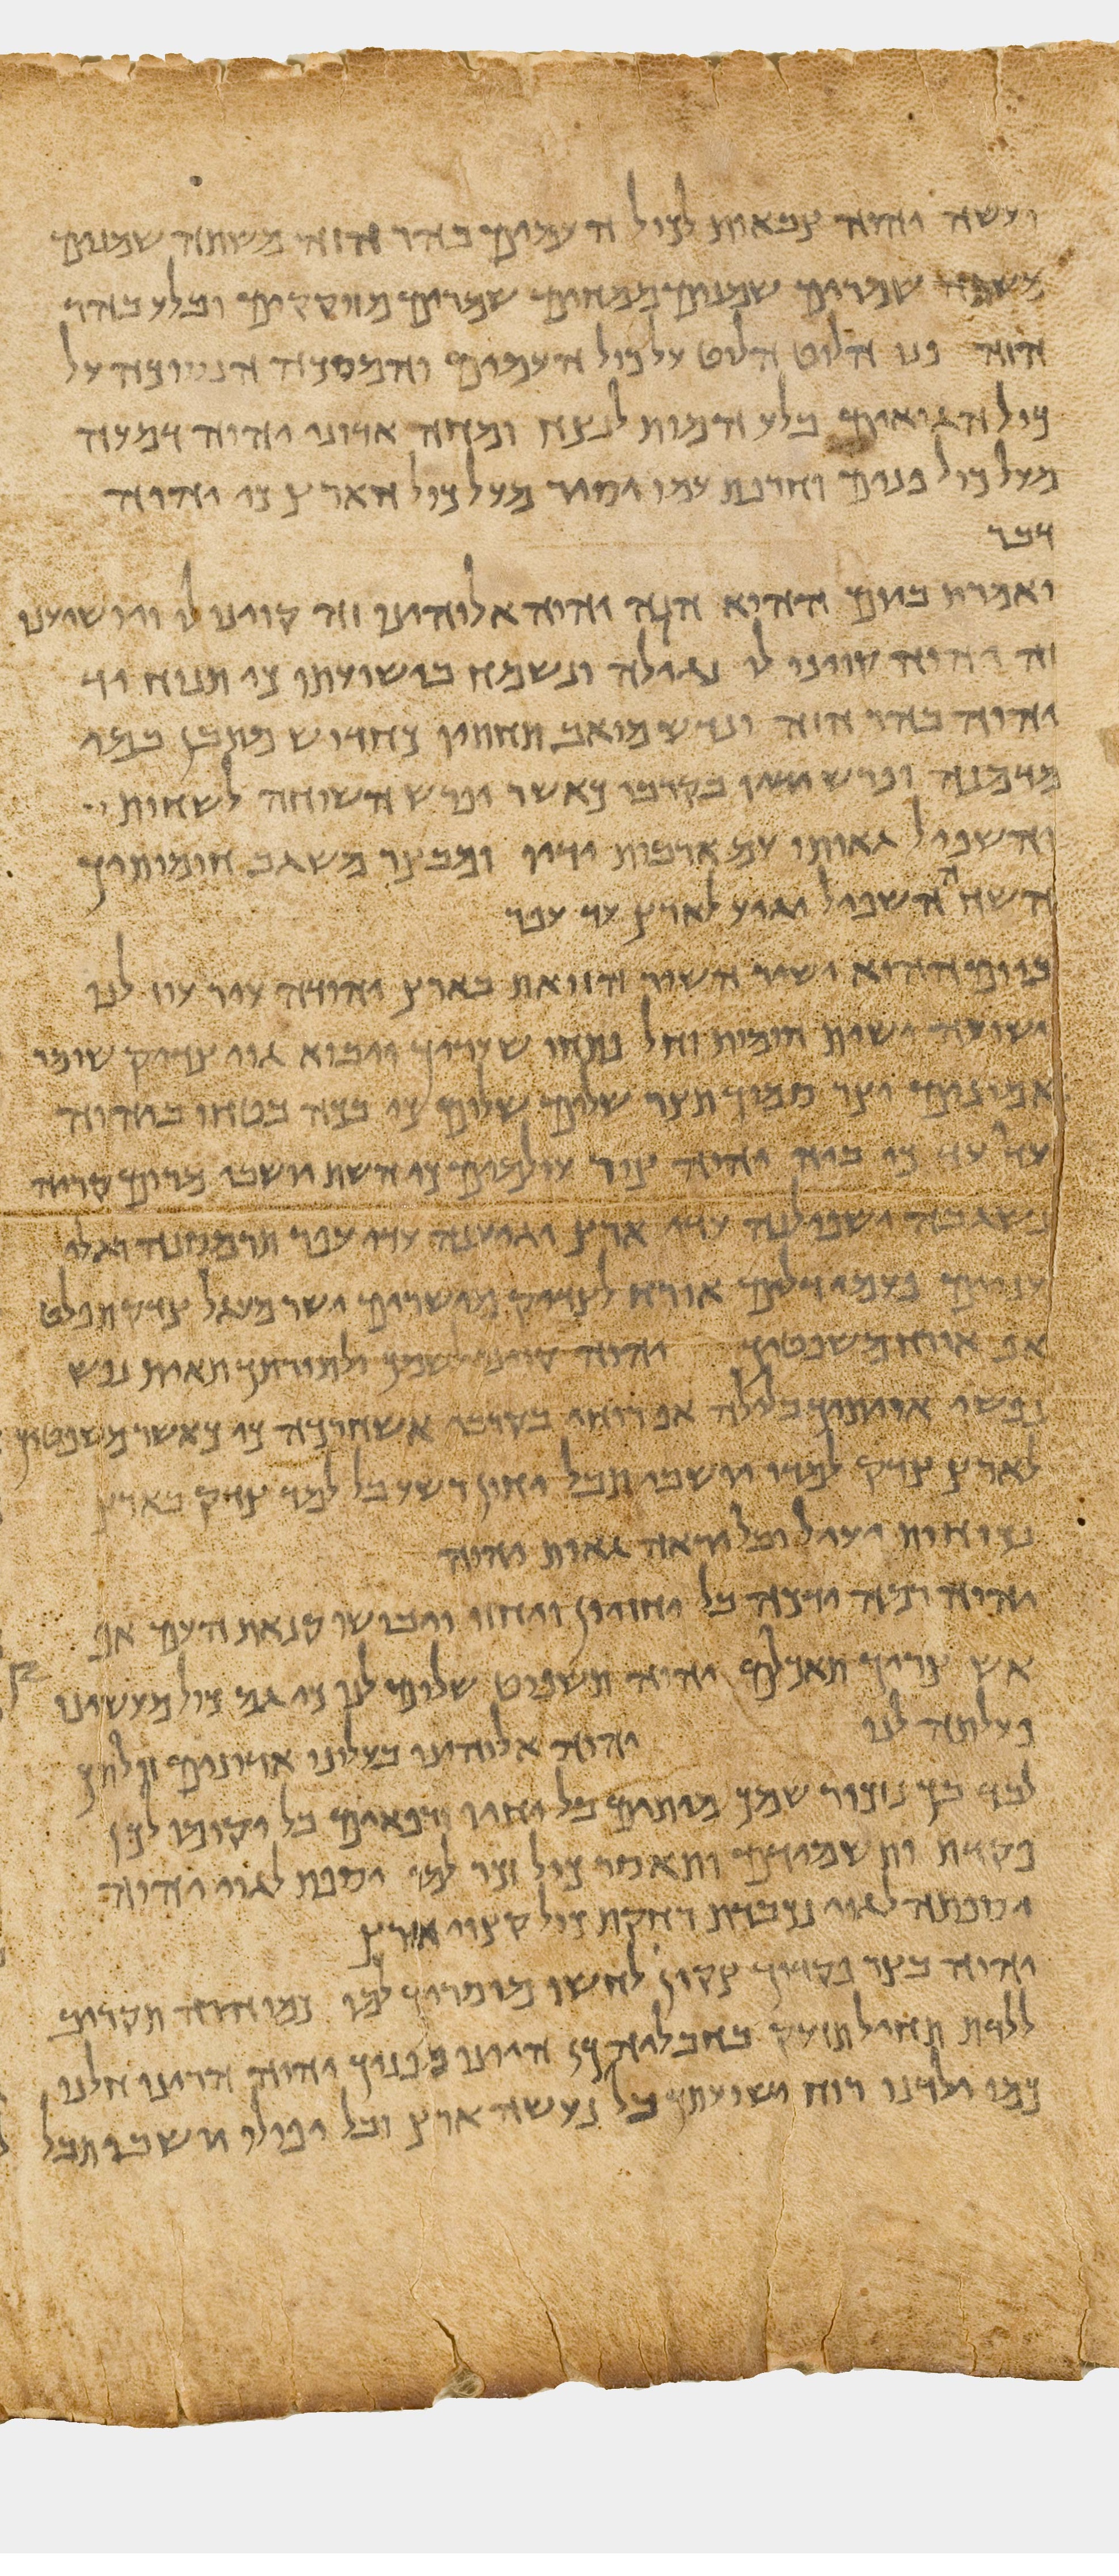 ועשה יהוה צבאות לכול העמים בהר הזה משתה שמנים
משתה שמרים שמנים ממחים שמרים מזוקקים ובלע בהר
הזה פני הלוט הלוט על כול העמים והמסכה הנסוכה על
כול הגואים בלע המות לנצח ומחה אדוני יהוה דמעה
מעל כול פנים וחרפת עמו יסיר מעל כול הארץ כי יהוה
דבר
ואמרת ביום ההיא הנה יהוה אלוהינו זה קוינו לו ויושיענו
זה יהוה קוינו לו נגילה ונשמח בישועתו כי תנוח יד
יהוה בהר הזה ונדש מואב תחתיו כחדוש מתבן במי
מדמנה ופרש ידיו בקרבו כאשר יפרש השוחה לשחות
והשפיל גאותו עם ארבות ידיו ומבצר משגב חומותיך
השח השפיל יגיע לארץ עד עפר
ביום ההוא ישיר השיר הזואת בארץ יהודה עיר עוז לנו
ישועה ישית חומות וחל פתחו שעריך ויבוא גוי צדיק שומר
אמונים יצר סמוך תצר שלום שלום כי בכה בטחו ביהוה
עדי עד כי ביה יהוה צור עולמים כי השח יושבי מרום קריה
נשגבה ישפילנה עדי ארץ יגיענה עדי עפר תרמסנה רגלי
עניים פעמי דלים אורח לצדיק מישרים ישר מעגל צדק תפלט
אף אורח משפטיך יהוה קוינו לשמך ולתורתך תאות נפש
נפשי אויתיך בלילה אף רוחי בקרבי אשחרכה כי כאשר משפטיך
לארץ צדק למדו יושבי תבל יחון רשע בל למד צדק בארץ
נכוחות יעול ובל יראה גאות יהוה
יהוה רמה ידכה בל יחזיון ויחזו ויבושו קנאת העם אף
אש צריך תאוכלם יהוה תשפוט שלום לנו כי גם כול מעשינו
פעלתה לנו יהוה אלוהינו בעלונו אדונים זולתך
לבד בך נזכור שמך מיתים בל יחיו ורפאים בל יקומו לכן
פקדת ותשמידם ותאסר כול זכר למו יספת לגוי יהוה
יספתה לגוי נכבדת רחקת כול קצוי ארץ
יהוה בצר פקדוך צקון לחשו מוסריך למו כמו הרה תקריב
ללדת תחיל תזעק בחבליה כן היינו מפניך יהוה הרינו חלנו
כמו ילדנו רוח ישועתך בל נעשה ארץ ובל יפולו יושבי תבל